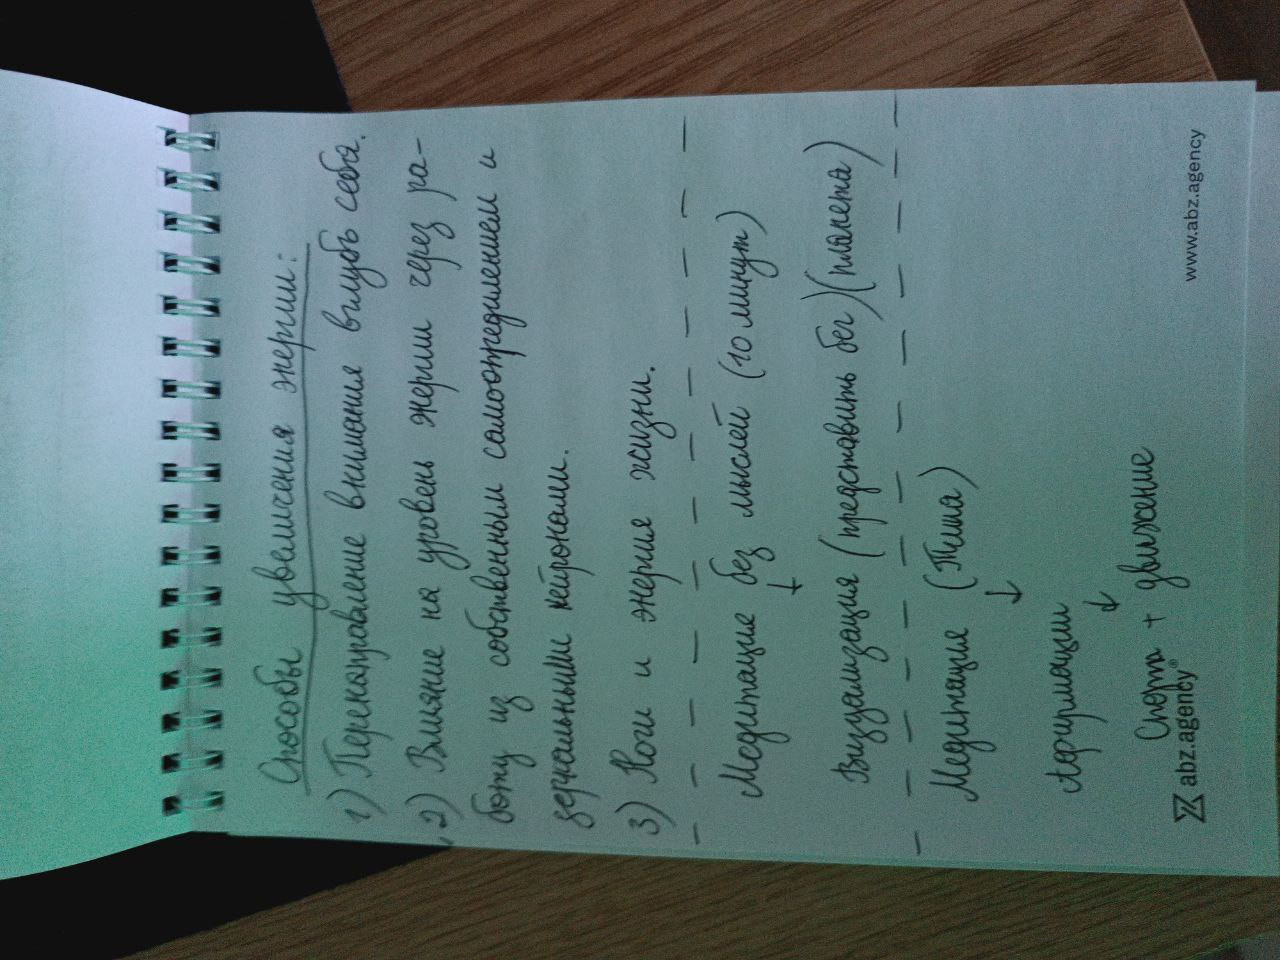 Способы увеличения энергии:
1) Перенаправление внимания вглубь себя.
2) Влияние на уровень энергии через ра-
боту из собственным самоопределением и
зеркальными нейронами.
3) Ноги и энергия жизни.
Медитация без мыслей (10 минут)
↓
Визуализация (представить бег)(планета)
Медитация (Тиша)
↓
Афирмации
↓
Спорт + движение
abz.agency®
www.abz.agency